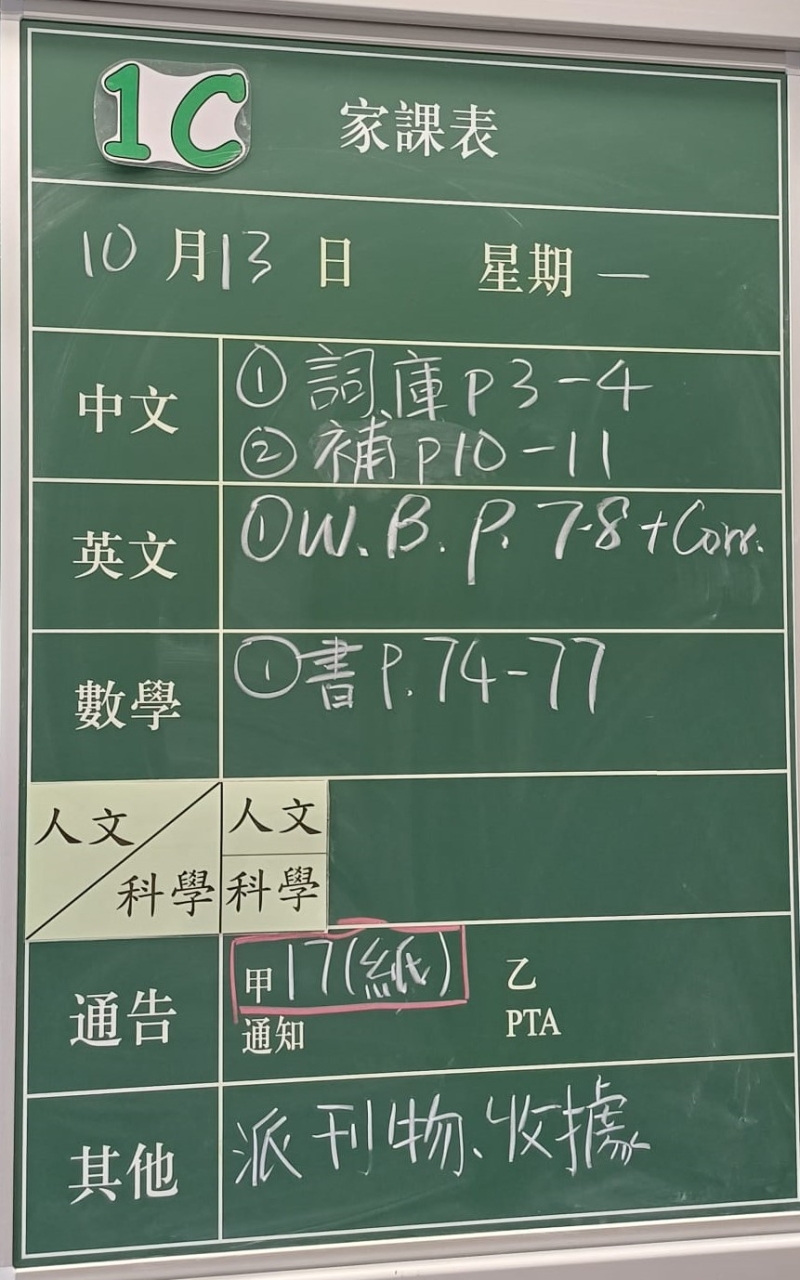 1C 家課表
10月13日 星期一
中文 ①詞庫p3-4
②補p10-11
英文 ①W.B.P.7-8+Corr.
數學 ①書P.74-77
人文/科學 人文
科學
通告 甲17(紙) 乙
通知 PTA
其他 派刊物、收據